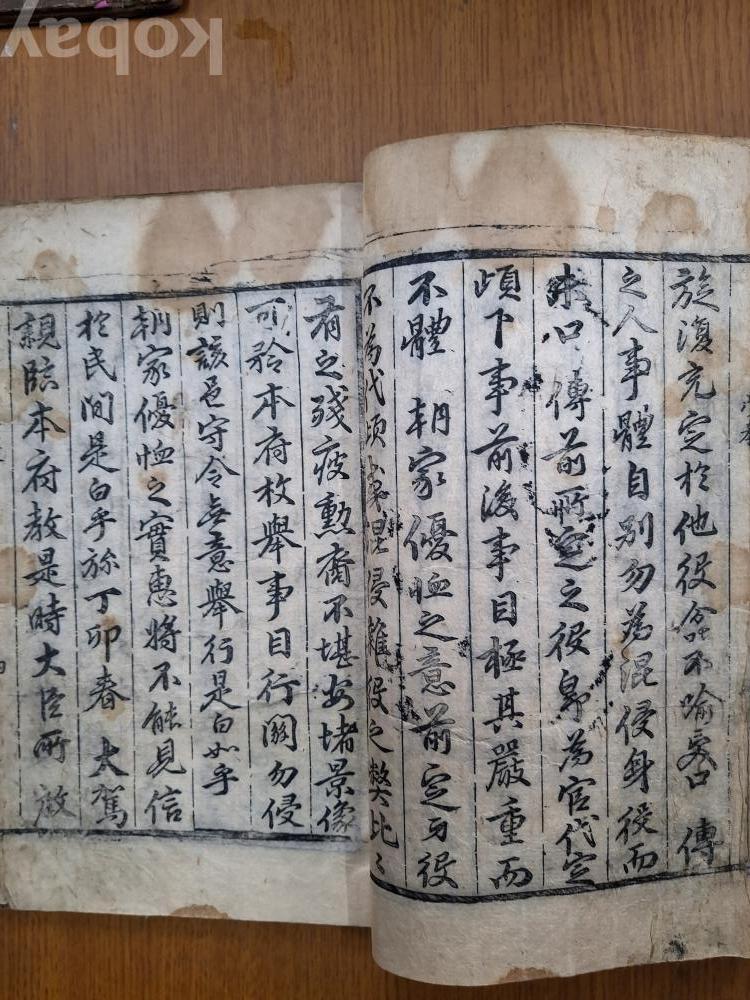 Kobay
旋復充定於他役叱不喩 傳
之人事體自別勿爲混侵身役而
口傳前所定之役鼻爲官代定
頉下事前後事目極其嚴重而
不體 朝家優恤之意前定身役
不爲代頉或混侵雜役之弊比比
有之殘疲勳裔不堪安堵景像
可矜本府枚擧事目行關勿侵
則該邑守令無意擧行是白如乎
朝家優恤之實惠將不能見信
於民間是白乎旀丁卯春 大駕
親臨本府敎是時大臣所 啟